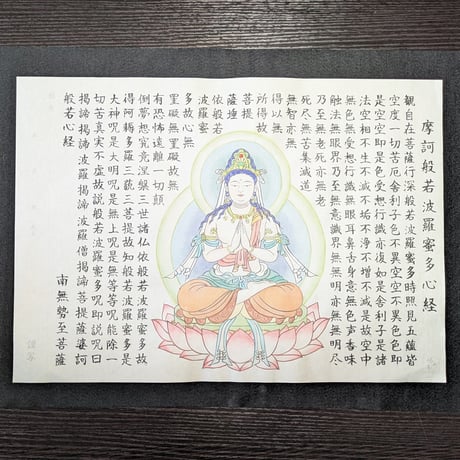 摩訶般若波羅蜜多心経
観自在菩薩行深般若波羅蜜多時照見五蘊皆
空度一切苦厄舎利子色不異空空不異色色即
是空空即是色受想行識亦復如是舎利子是諸
法空相不生不滅不垢不浄不増不減是故空中
無色無受想行識無眼耳鼻舌身意無色声香味
触法無眼界乃至無意識界無無明亦無無明尽
乃至無老死亦無老
死尽無苦集滅道
無智亦無
得以無
所得故
菩提
薩埵
依般若
波羅蜜
多故心無
罣礙無罣礙故無
有恐怖遠離一切顛
倒夢想究竟涅槃三世諸仏依般若波羅蜜多故
得阿耨多羅三藐三菩提故知般若波羅蜜多是
大神呪是大明呪是無上呪是無等等呪能除一
切苦真実不虚故説般若波羅蜜多呪即説呪曰
掲諦掲諦波羅掲諦波羅僧掲諦菩提薩婆訶
般若心経
南無勢至菩薩